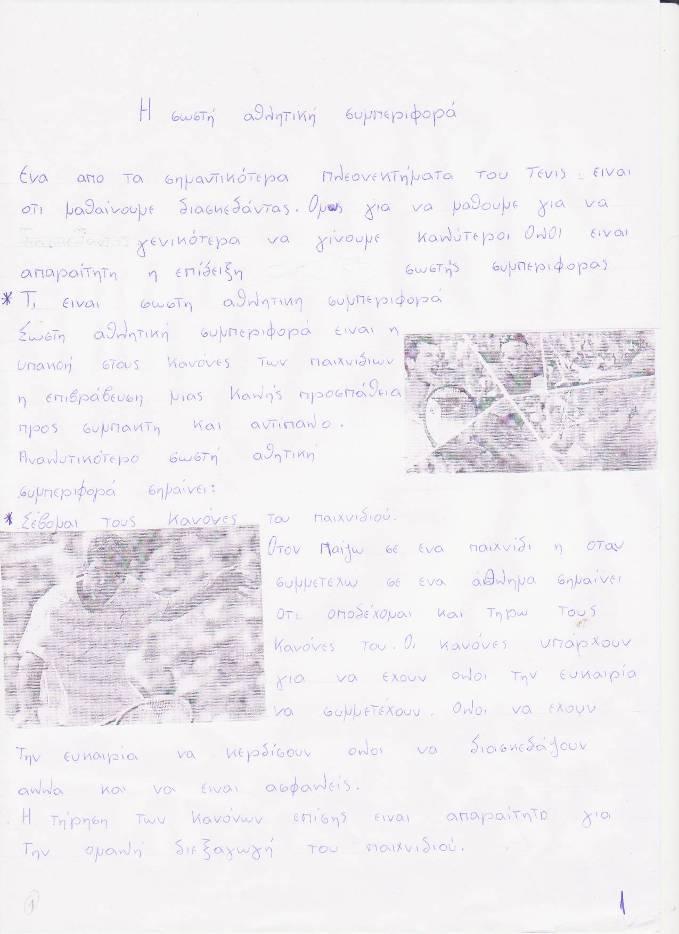 Η σωστή αθλητική συμπεριφορά
Ενα απο τα σημαντικότερα πλεονεκτήματα του Τενις ειναι
οτι μαθαίνουμε διασκεδάντας. Ομως για να μαθουμε για να
γενικότερα να γίνουμε καλύτεροι Ολοι ειναι
απαραίτητη η επίδειξη σωστής συμπεριφορας
* Τι ειναι σωστη αθλητικη συμπεριφορά
Σωστη αθλητική συμπεριφορά ειναι η
υπακοή στους κανόνες των παιχνιδιων
η επιβράβευση μιας καλής προσπάθεια
προς συμπακτη και αντιπαλο.
Αναλυτικότερο σωστή αθητική
συμπεριφορά σημαίνει:
* Σέβομαι τους κανόνες του παιχνιδιού.
Οταν Παίζω σε ενα παιχνίδι η οταν
συμμετεχω σε ενα άθλημα σημαίνει
οτι αποδέχομαι και τηρω τους
κανόνες του. Οι κανόνες υπάρχουν
για να εχουν ολοι την ευκαιρία
να συμμετέχουν. Ολοι να εχουν
την ευκαιρία να κερδίσουν ολοι να διασκεδάζουν
αλλα και να ειναι ασφαλείς.
Η τήρηση των κανόνων επίσης ειναι απαραίτητο για
την ομαλή διεξαγωγή του παιχνιδιού.
1 1